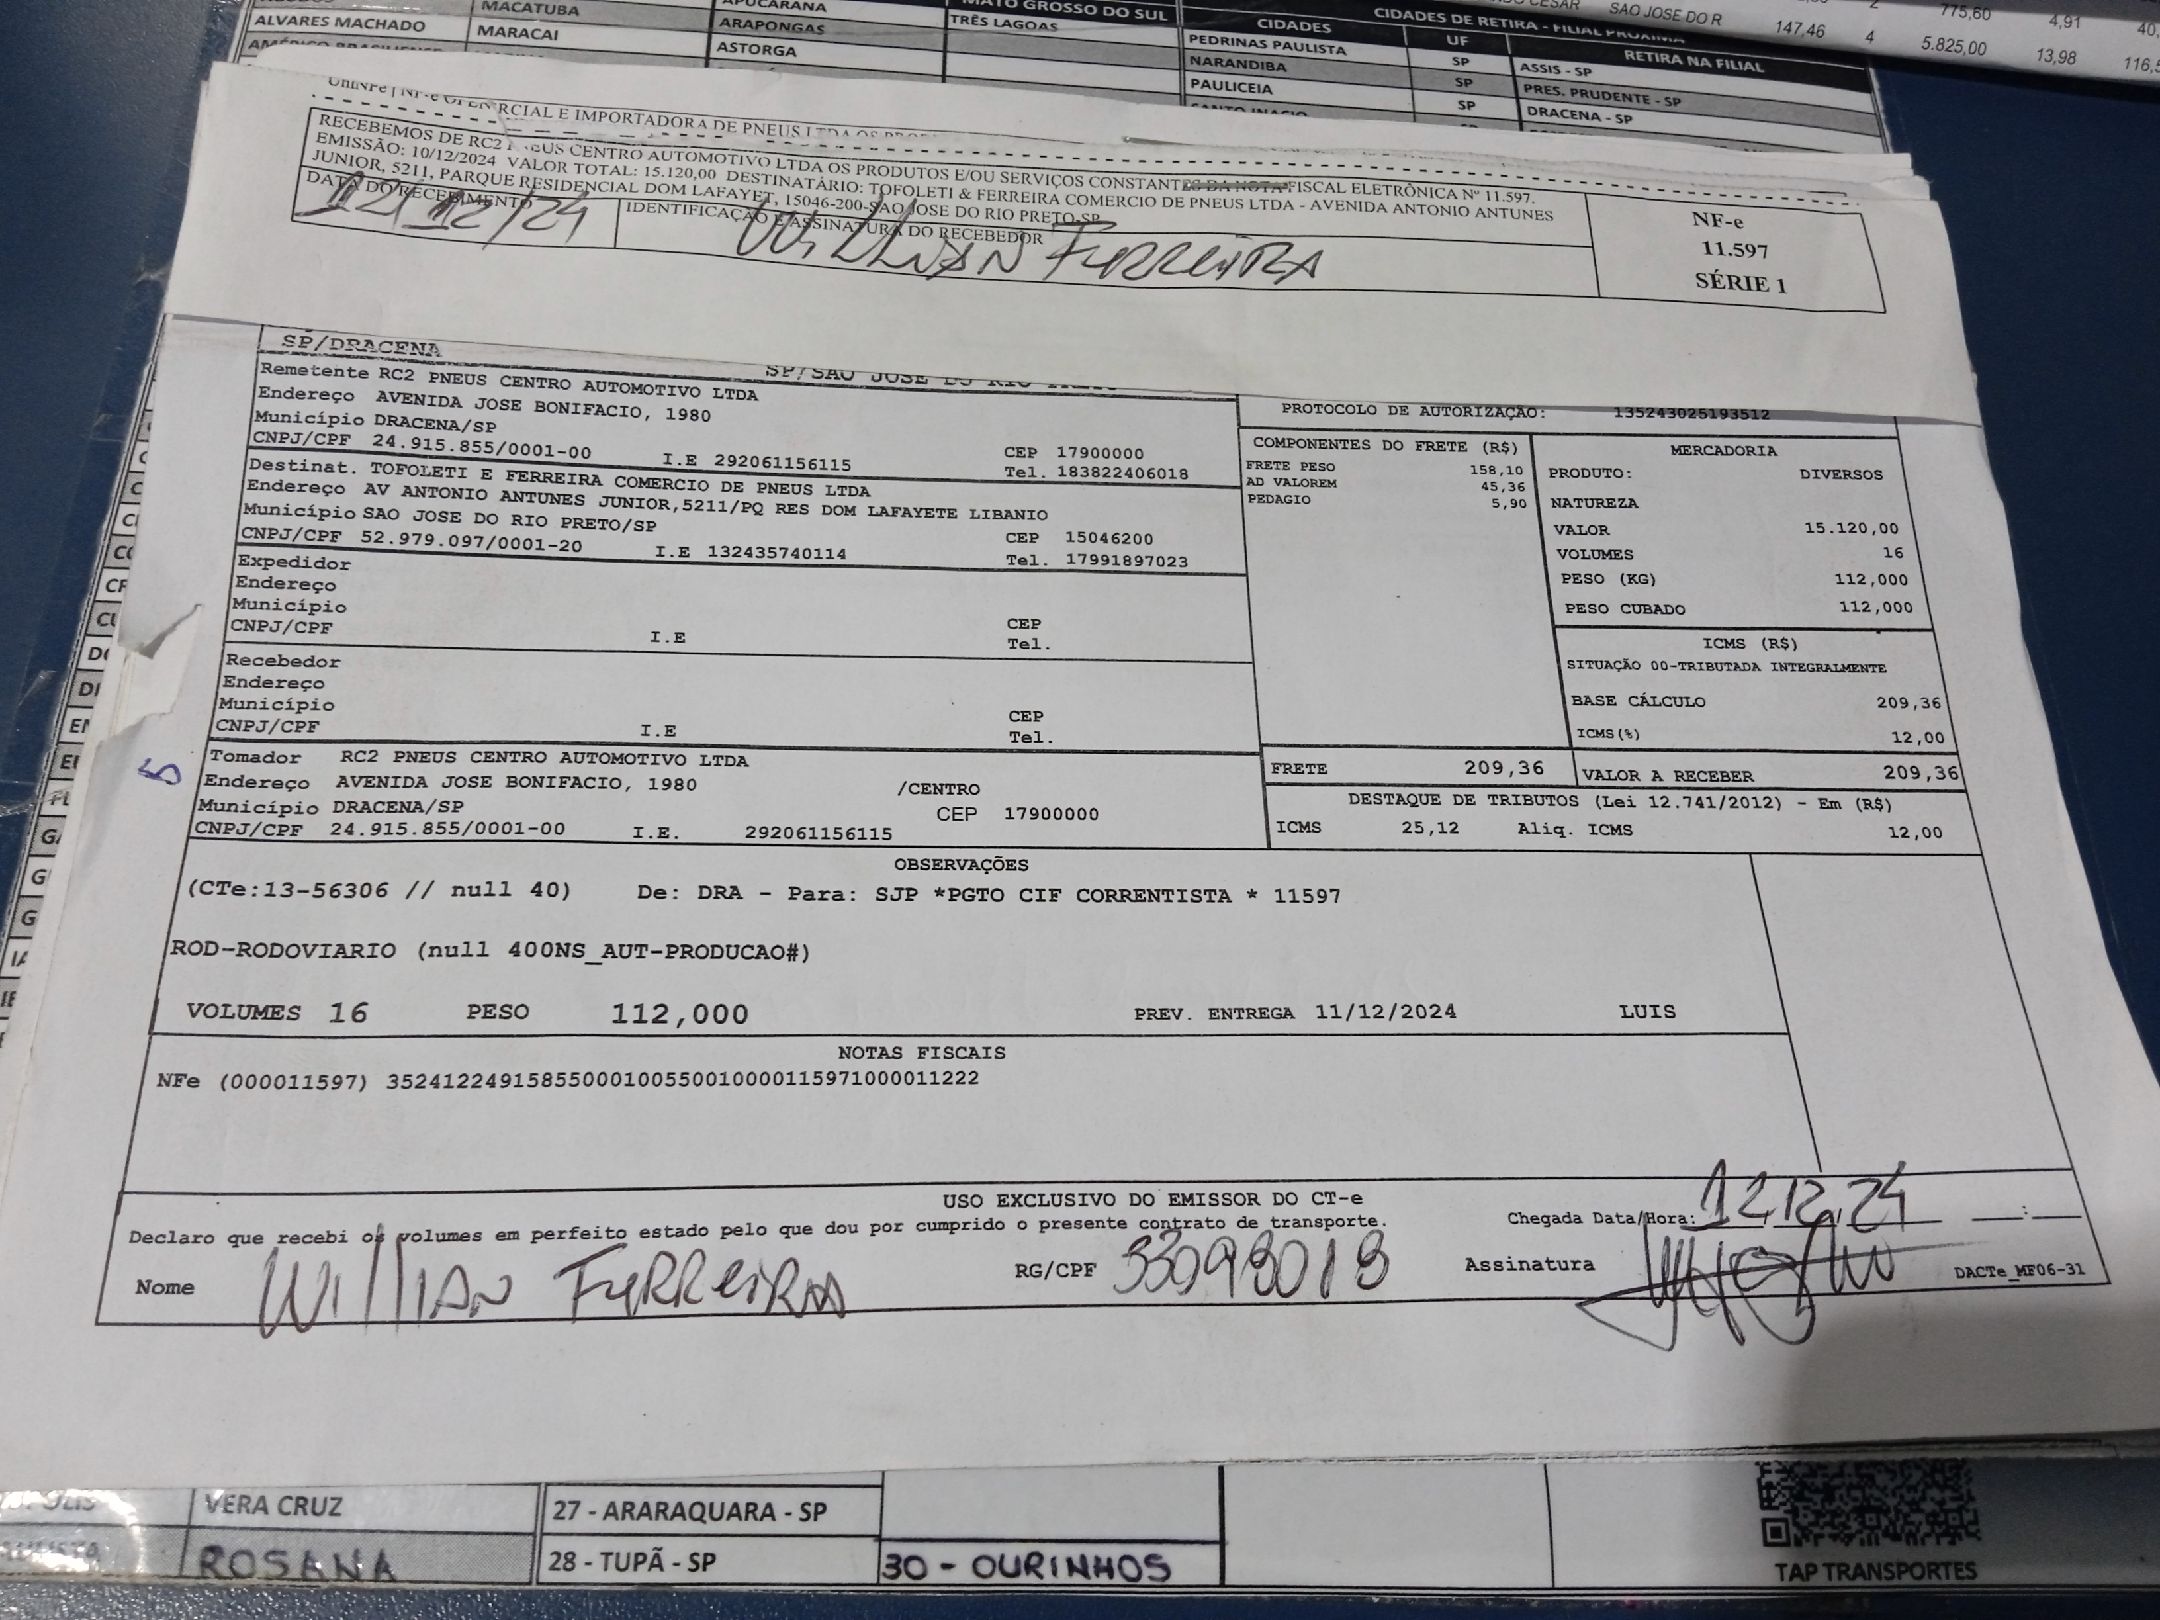 MACATUBA
APUCARANA
MATO GROSSO DO SUL
CIDADES DE RETIRA - FILIAL PRÓXIMA
SAO JOSE DO R 147,46 4 5.825,00 13,98
775,60 4,91
ALVARES MACHADO MARACAI ARAPONGAS TRÊS LAGOAS CIDADES UF RETIRA NA FILIAL
ASTORGA PEDRINAS PAULISTA SP ASSIS - SP
NARANDIBA SP PRES. PRUDENTE - SP
PAULICEIA SP DRACENA - SP
RCIAL E IMPORTADORA DE PNEUS LTDA
RECEBEMOS DE RC2 PNEUS CENTRO AUTOMOTIVO LTDA OS PRODUTOS E/OU SERVIÇOS CONSTANTES DA NOTA FISCAL ELETRÔNICA Nº 11.597.
EMISSÃO: 10/12/2024 VALOR TOTAL: 15.120,00 DESTINATÁRIO: TOFOLETI & FERREIRA COMERCIO DE PNEUS LTDA - AVENIDA ANTONIO ANTUNES
JUNIOR, 5211, PARQUE RESIDENCIAL DOM LAFAYET, 15046-200-SAO JOSE DO RIO PRETO-SP
DATA DO RECEBIMENTO IDENTIFICAÇÃO E ASSINATURA DO RECEBEDOR
12/12/24 Willian Ferreira
NF-e
11.597
SÉRIE 1
SP/DRACENA SP/SAO JOSE DO RIO PRETO
Remetente RC2 PNEUS CENTRO AUTOMOTIVO LTDA
Endereço AVENIDA JOSE BONIFACIO, 1980
Município DRACENA/SP CEP 17900000
CNPJ/CPF 24.915.855/0001-00 I.E 292061156115 Tel. 183822406018
Destinat. TOFOLETI E FERREIRA COMERCIO DE PNEUS LTDA
Endereço AV ANTONIO ANTUNES JUNIOR,5211/PQ RES DOM LAFAYETE LIBANIO
Município SAO JOSE DO RIO PRETO/SP CEP 15046200
CNPJ/CPF 52.979.097/0001-20 I.E 132435740114 Tel. 17991897023
Expedidor
Endereço
Município CEP
CNPJ/CPF I.E Tel.
Recebedor
Endereço
Município CEP
CNPJ/CPF I.E Tel.
Tomador RC2 PNEUS CENTRO AUTOMOTIVO LTDA
Endereço AVENIDA JOSE BONIFACIO, 1980 /CENTRO
Município DRACENA/SP CEP 17900000
CNPJ/CPF 24.915.855/0001-00 I.E. 292061156115
PROTOCOLO DE AUTORIZAÇÃO: 135243025193512
COMPONENTES DO FRETE (R$)
FRETE PESO 158,10
AD VALOREM 45,36
PEDAGIO 5,90
MERCADORIA
PRODUTO: DIVERSOS
NATUREZA
VALOR 15.120,00
VOLUMES 16
PESO (KG) 112,000
PESO CUBADO 112,000
ICMS (R$)
SITUAÇÃO 00-TRIBUTADA INTEGRALMENTE
BASE CÁLCULO 209,36
ICMS(%) 12,00
FRETE 209,36 VALOR A RECEBER 209,36
DESTAQUE DE TRIBUTOS (Lei 12.741/2012) - Em (R$)
ICMS 25,12 Aliq. ICMS 12,00
OBSERVAÇÕES
(CTe:13-56306 // null 40) De: DRA - Para: SJP *PGTO CIF CORRENTISTA * 11597
ROD-RODOVIARIO (null 400NS_AUT-PRODUCAO#)
VOLUMES 16 PESO 112,000 PREV. ENTREGA 11/12/2024 LUIS
NOTAS FISCAIS
NFe (000011597) 35241224915855000100550010000115971000011222
USO EXCLUSIVO DO EMISSOR DO CT-e
Declaro que recebi os volumes em perfeito estado pelo que dou por cumprido o presente contrato de transporte. Chegada Data/Hora: 12.12.24 :
Nome Willian Ferreira RG/CPF 33098018 Assinatura DACTe_MF06-31
VERA CRUZ 27 - ARARAQUARA - SP
ROSANA 28 - TUPÃ - SP 30 - OURINHOS
TAP TRANSPORTES